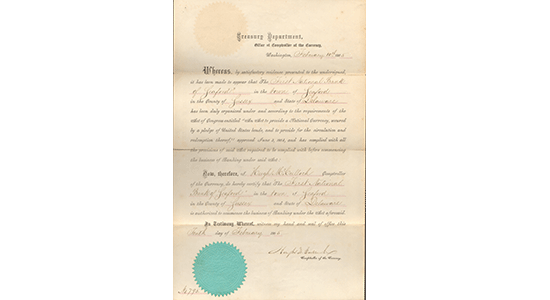 Treasury Department,
Office of Comptroller of the Currency,
Washington, February 10th 1865
Whereas, by satisfactory evidence presented to the undersigned,
it has been made to appear that The First National Bank
of Seaford in the town of Seaford
in the County of Sussex and State of Delaware
has been duly organized under and according to the requirements of the
Act of Congress entitled "An Act to provide a National Currency, secured
by a pledge of United States bonds, and to provide for the circulation and
redemption thereof," approved June 3, 1864, and has complied with all
the provisions of said Act required to be complied with before commencing
the business of Banking under said Act:
Now, therefore, I Hugh McCulloch Comptroller
of the Currency do hereby certify that The First National
Bank of Seaford in the town of Seaford
in the County of Sussex and State of Delaware
is authorized to commence the business of Banking under the Act aforesaid.
In Testimony Whereof, witness my hand and seal of office this
Tenth day of February 1865
Hugh McCulloch
Comptroller of the Currency